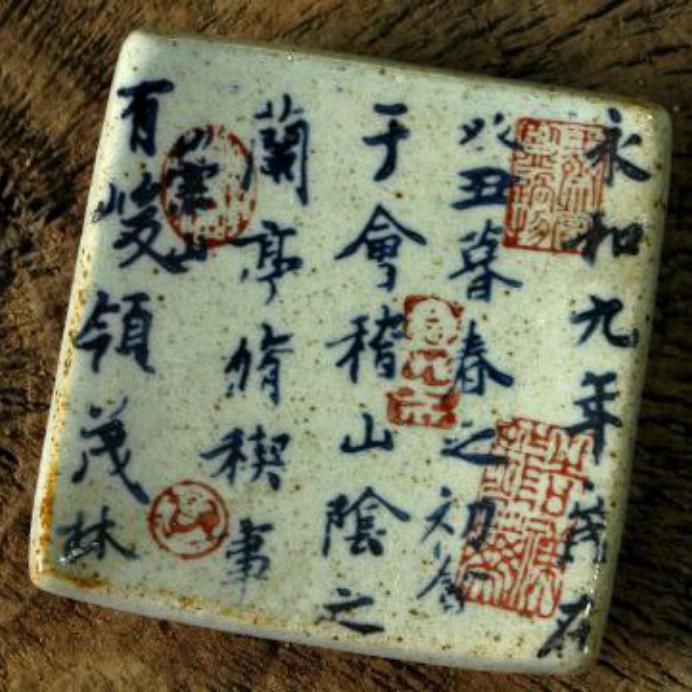 永和九年歲在
癸丑暮春之初會
于會稽山陰之
蘭亭脩稧事
崇山
有峻領茂林